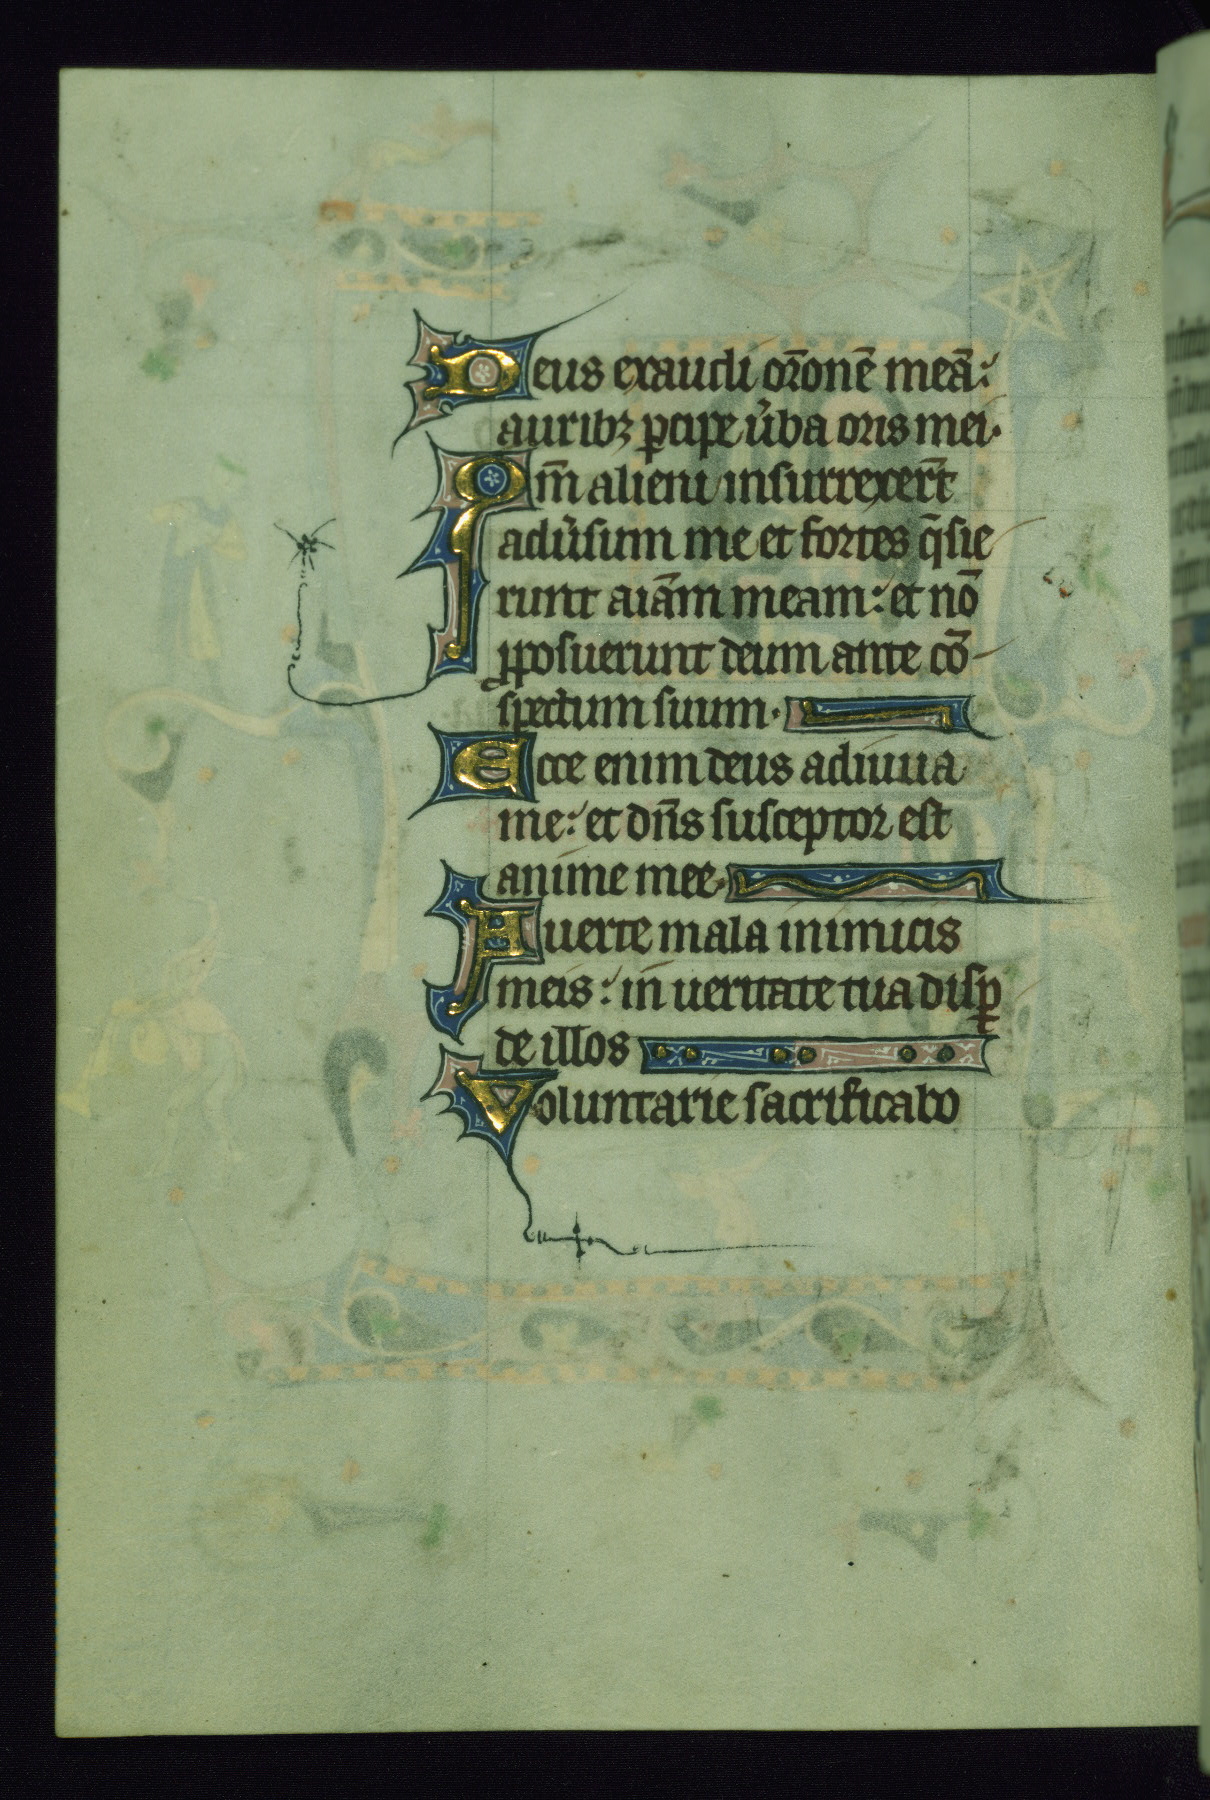 Deus exaudi or̄onē meā:
aurib; ꝑcipe ũba oris mei.
Qm̄ alieni insurrexer̄t
adũsum me et fortes q̄sie
runt aīam meam: et nō
ꝓposuerunt deum ante cō
spectum suum.
Ecce enim deus adiuua
me: et dn̄s susceptor est
anime mee.
Auerte mala inimicis
meis: in ueritate tua disꝑ
de illos
Voluntarie sacrificabo